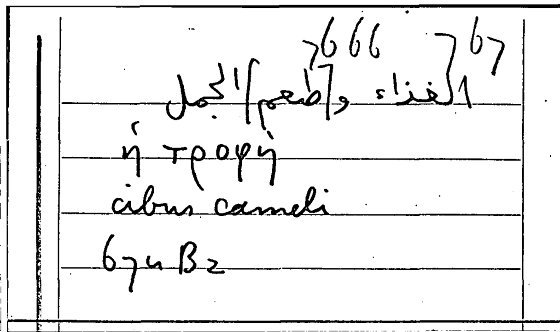 7666 767
الغذاء و/طعم/الجمل
ἡ τροφή
cibus cameli
674 B2